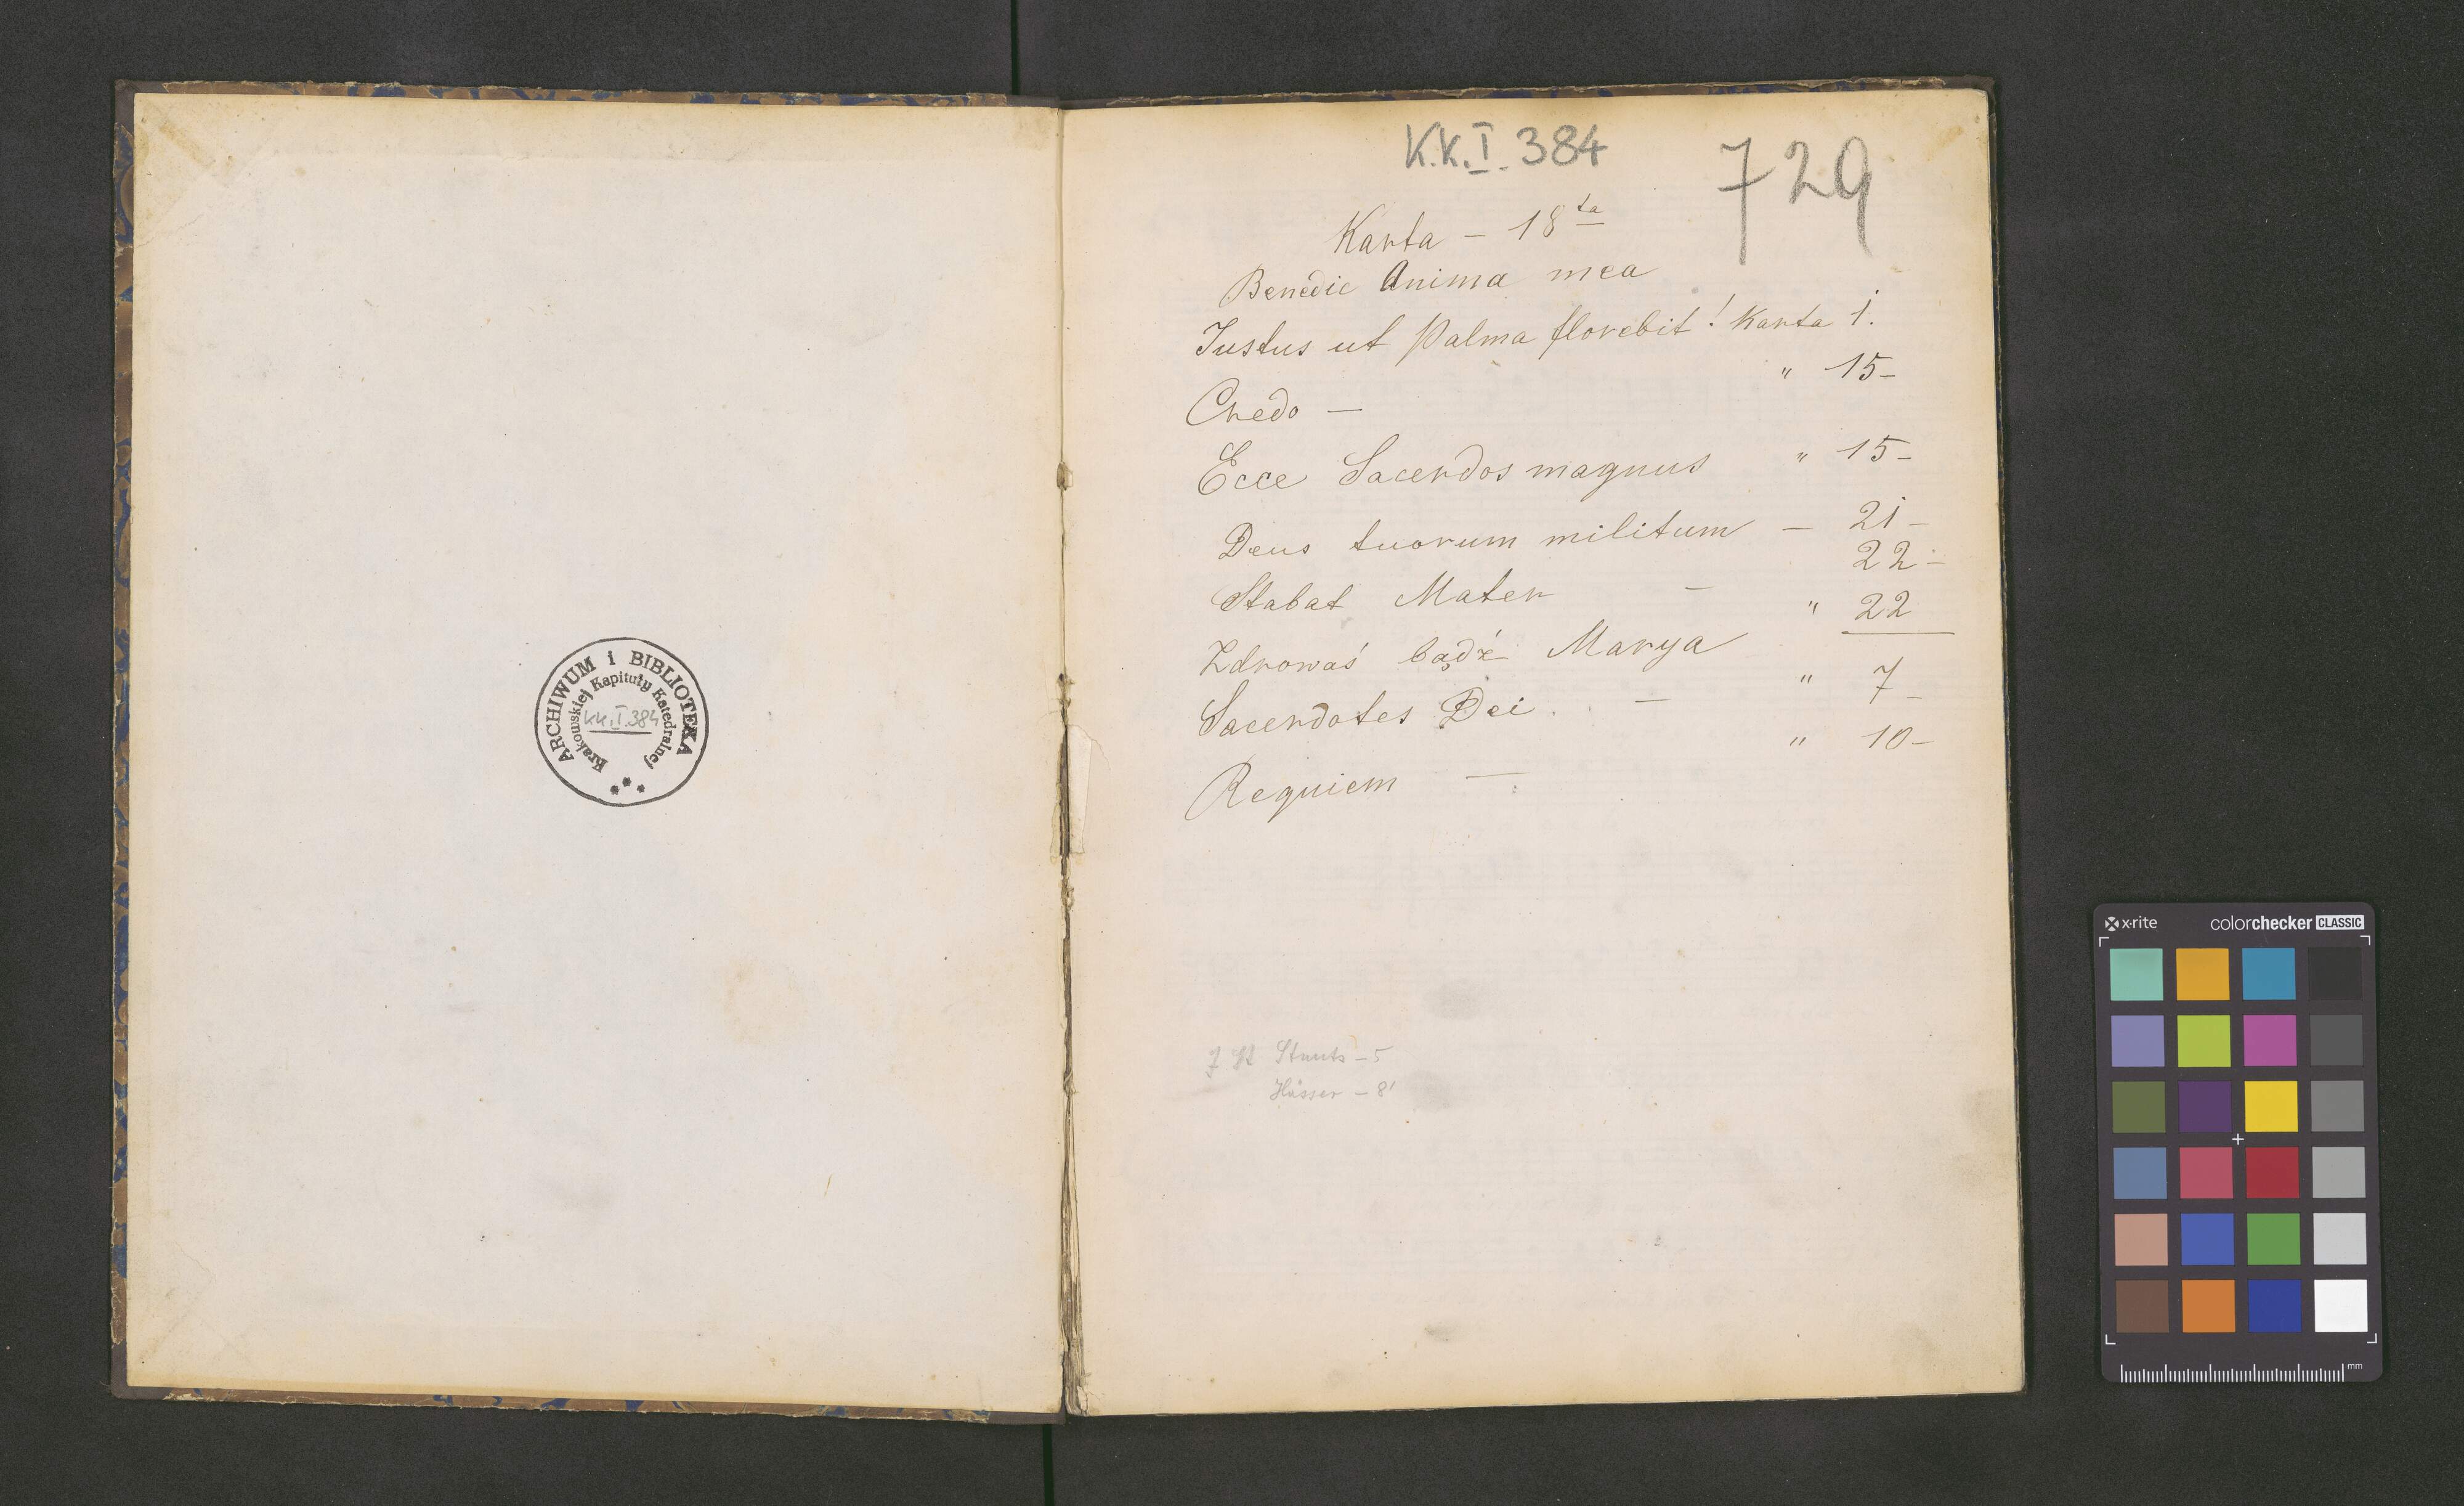 ARCHIWUM i BIBLIOTEKA
Krakowskiej Kapituły Katedralnej
KK.I.384
K.K.I. 384
729
Karta - 18ta
Benedic Anima mea
Justus ut Palma florebit! Karta 1.
" 15-
Credo —
Ecce Sacerdos magnus " 15-
Deus tuorum militum - 21-
22-
Stabat Mater -
" 22
Zdrowaś bądź Marya
" 7-
Sacerdotes Dei -
" 10-
Requiem —
- 5
- 8'
x·rite colorchecker CLASSIC
mm